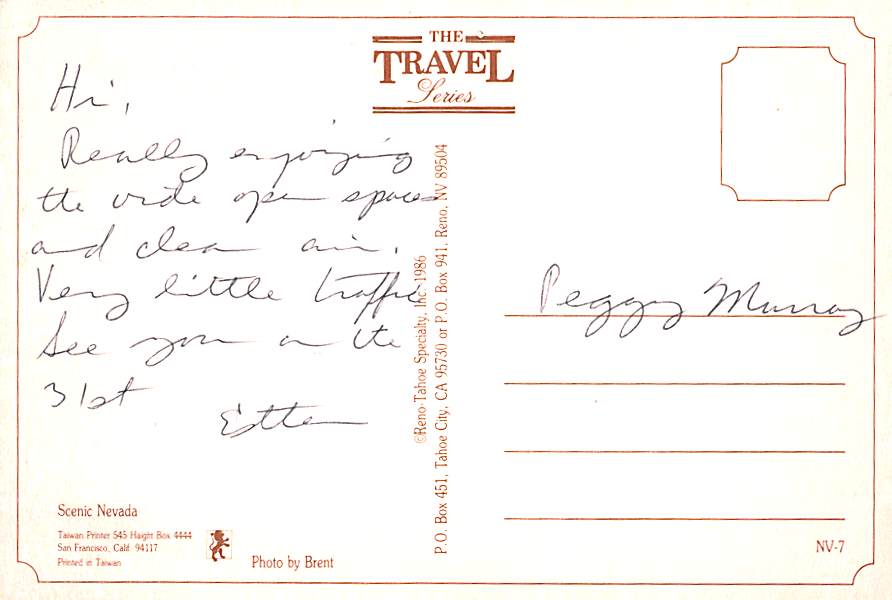 THE
TRAVEL
Series
Hi,
Really enjoying
the wide open spaces
and clean air.
Very little traffic
See you on the
31st
Esther
Peggy Murray
©Reno-Tahoe Specialty, Inc. 1986
P.O. Box 451, Tahoe City, CA 95730 or P.O. Box 941, Reno, NV 89504
Scenic Nevada
Taiwan Printer 545 Haight Box 4444
San Francisco, Calif. 94117
Printed in Taiwan
Photo by Brent
NV-7